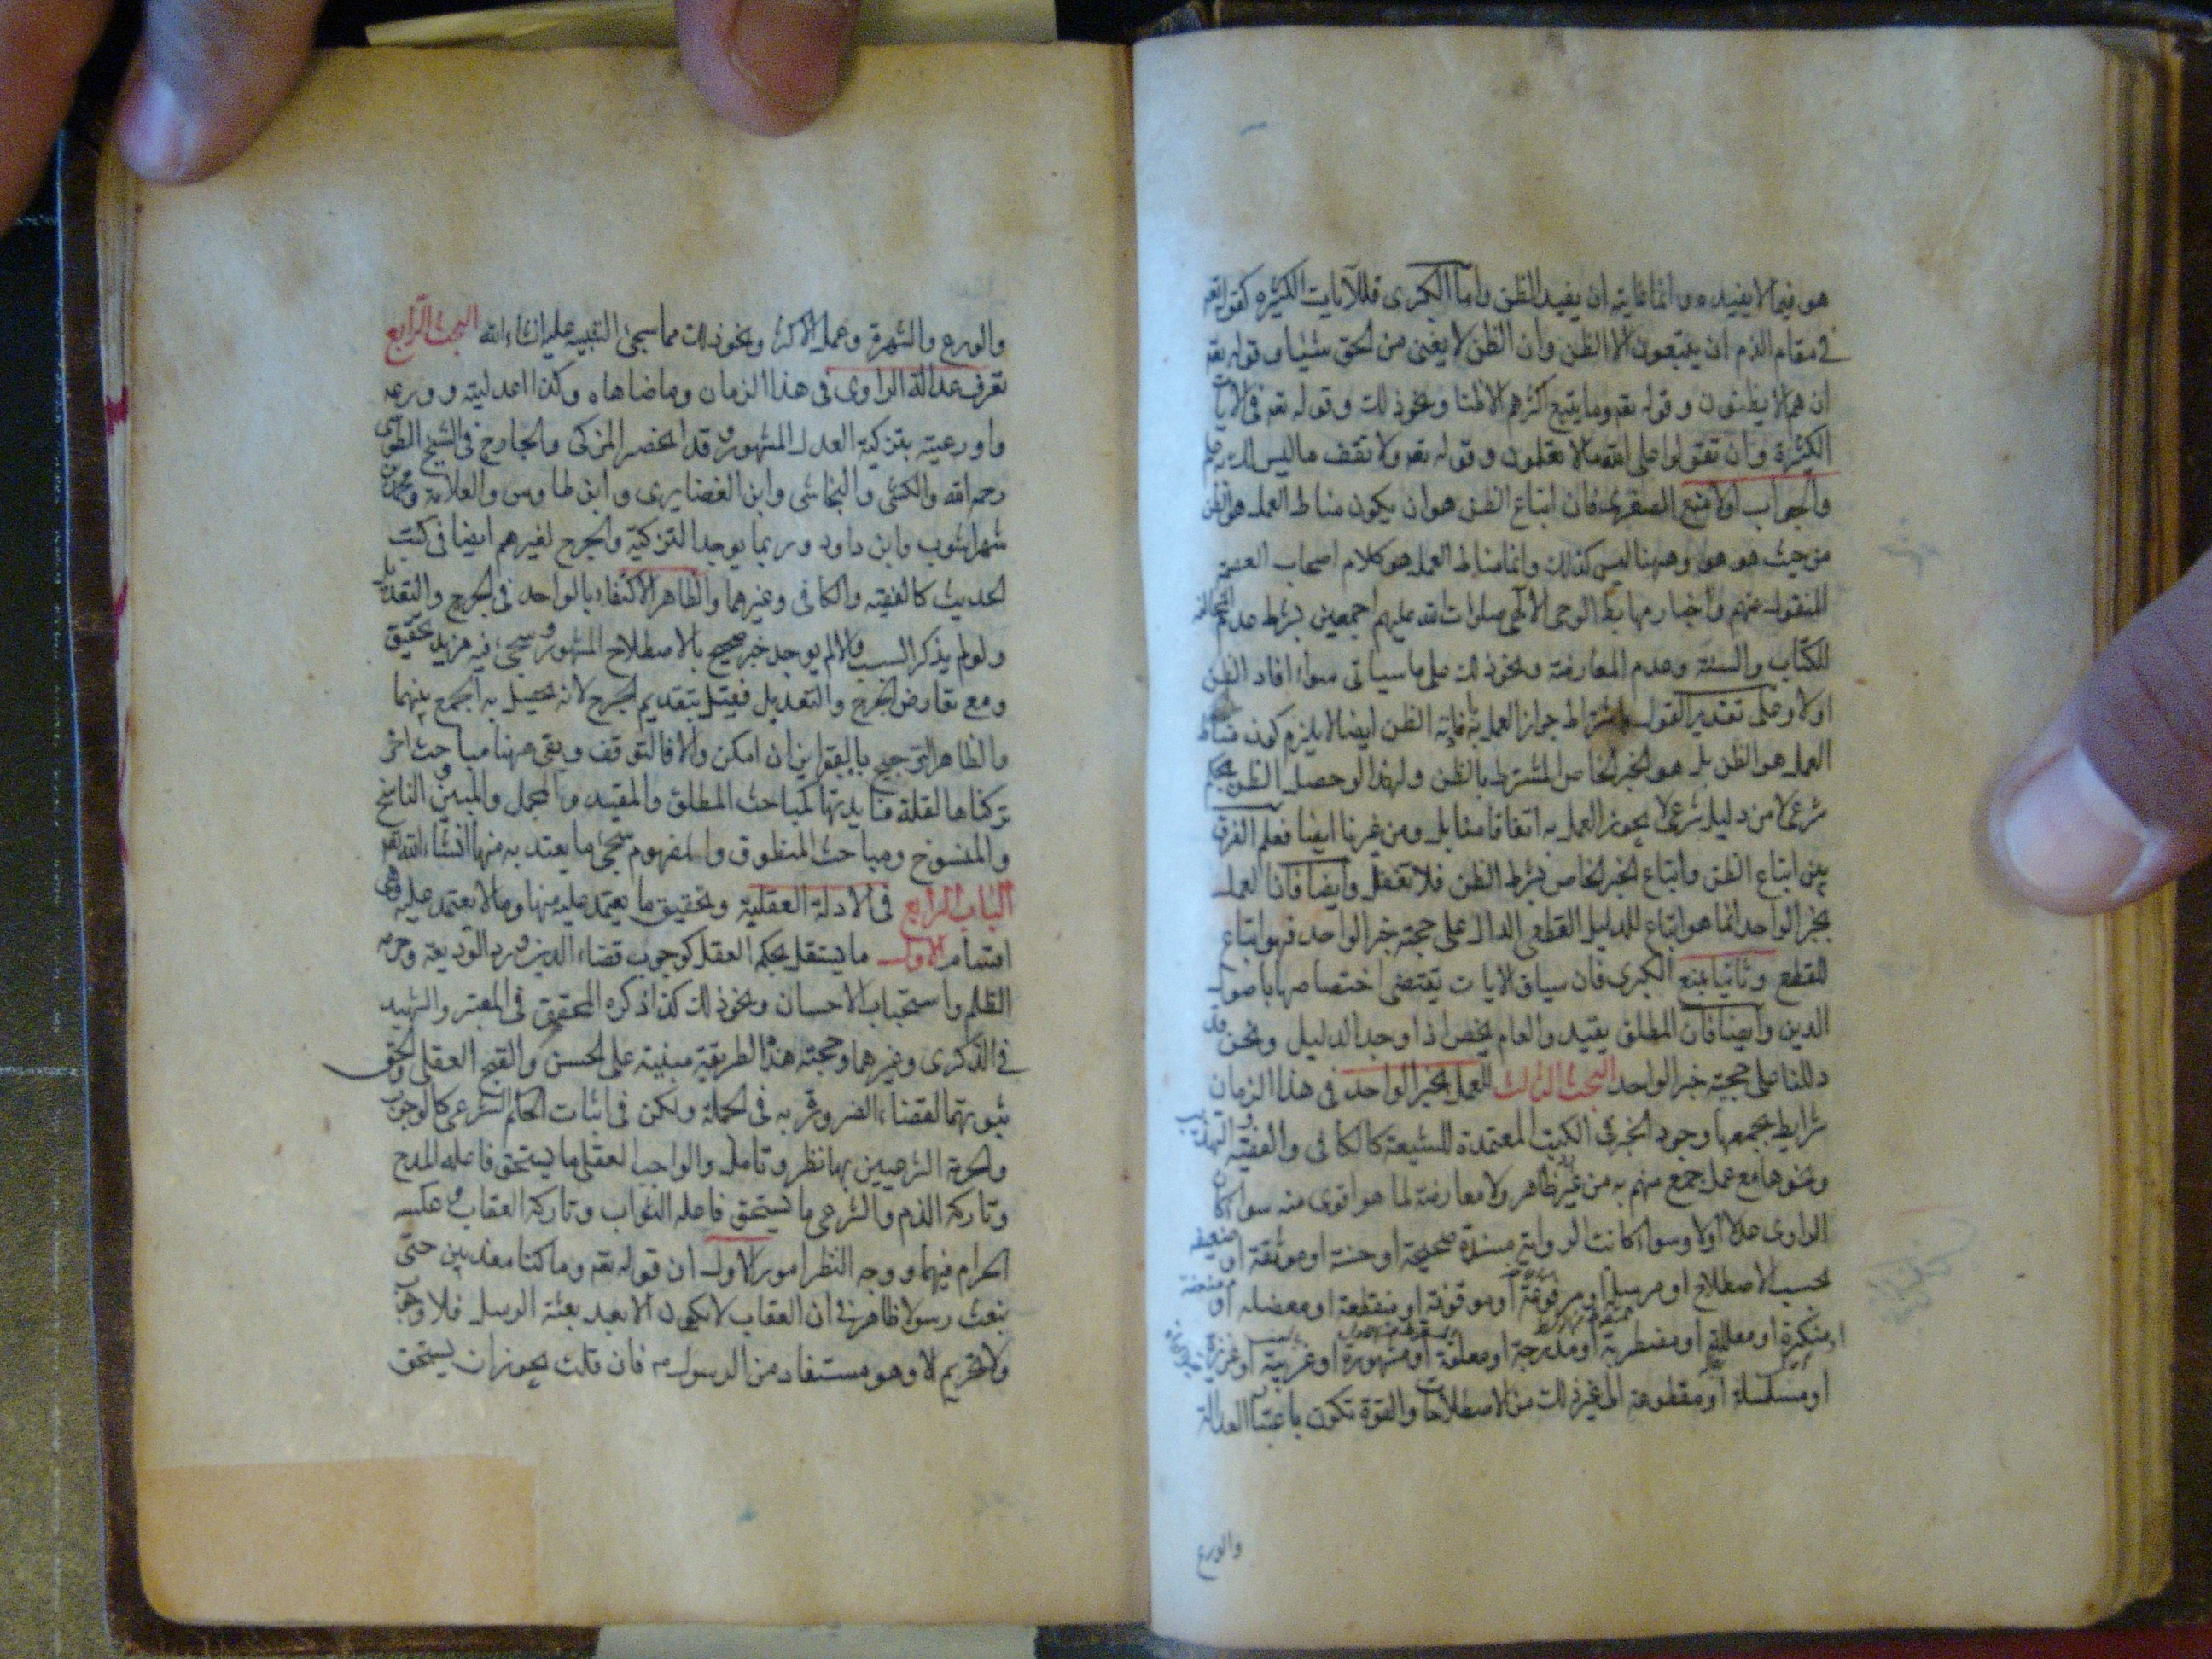 هو فيما لا يفيده وانما غايته ان يفيد الظن واما الكبرى فللآيات الكثيره كقوله تعه
في مقام الذم ان يتبعون الا الظن وان الظن لا يغنى من الحق شيئا وقوله تعه
ان هم الا يظنون وقوله تعه وما يتبع اكثرهم الا ظنا ونحو ذلك وقوله تعه في الايات
الكثيرة وان تقولوا على الله ما لا تعلمون وقوله تعه ولا تقف ما ليس لك به علم
والجواب اولا منع الصغرى فان اتباع الظن هو ان يكون مناط العمل هو الظن
من حيث هو هو وههنا ليس كذلك وانما مناط العمل هو كلام اصحاب العصمة
المنقول عنهم واخبار مهابط الوحى الالهى صلوات الله عليهم اجمعين بشرط عدم المخالفة
للكتاب والسنة وعدم المعارضة ونحو ذلك على ما سياتى سواء افاد الظن
اولا وعلى تقدير القول باشتراط جواز العمل به بافادته الظن ايضا لا يلزم كون مناط
العمل هو الظن بل هو الخبر الخاص المشترط بالظن ولهذا لو حصل الظن بحكم
شرعى لا من دليل شرعى لا يجوز العمل به اتفاقا منا بل ومن غيرنا ايضا فعلم الفرق
بين اتباع الظن واتباع الخبر الخاص بشرط الظن فلا تغفل وايضا فان العمل
بخبر الواحد انما هو اتباع للدليل القطعى الدال على حجية خبر الواحد فهو اتباع
للقطع وثانيا بمنع الكبرى فان سياق الايات يقتضى اختصاصها باصول
الدين وايضا فان المطلق يقيد والعام يخص اذا وجد الدليل ونحن قد
دللنا على حجية خبر الواحد البحث الثالث للعمل بخبر الواحد في هذا الزمان
شرايط يجمعها وجود الخبر في الكتب المعتمدة للشيعة كالكافى والفقيه والتهذيب
ونحوها مع عمل جمع منهم به من غير رد ظاهر ولا معارضة لما هو اقوى منه سواء كان
الراوى عدلا اولا وسواء كانت الرواية مسندة صحيحة او حسنة او موثقة او ضعيفة
بحسب الاصطلاح او مرسلة او مرفوعة او موقوفة او منقطعة او معضلة او معنعنة
او منكرة او معللة او مضطربة او مدرجة او معلقة او مشهورة او غريبة او عزيزة
او مسلسلة او مقطوعة الى غير ذلك من الاصطلاحات والقوة تكون باعتبار العدالة
والورع
والورع والشهرة وعمل الاكثر ونحو ذلك مما سيجئ التنبيه عليه انشاء الله البحث الرابع
تعرف عدالة الراوى في هذا الزمان وما ضاهاه وكذا اعدليته وورعه
واورعيته بتزكية العدل المشهور وقد انحصر المزكى والجارح في الشيخ الطوسى
رحمه الله والكشى والنجاشى وابن الغضايرى وابن طاوس والعلامة ومحمد بن
شهراشوب وابن داود وربما يوجد التزكية والجرح لغيرهم ايضا في كتب
الحديث كالفقيه والكافى وغيرهما والظاهر الاكتفاء بالواحد في الجرح والتعديل
ولو لم يذكر السبب والا لم يوجد خبر صحيح بالاصطلاح المشهور وسيجئ فيه مزيد تحقيق
ومع تعارض الجرح والتعديل فقيل بتقديم الجرح لانه يحصل به الجمع بينهما
والظاهر الترجيح بالقراين ان امكن والا فالتوقف وبقى ههنا مباحث اخر
تركناها لقلة فايدتها كمباحث المطلق والمقيد والمجمل والمبين والناسخ
والمنسوخ ومباحث المنطوق والمفهوم سيجئ ما يعتد به منها انشاء الله تعه
الباب الرابع في الادلة العقلية وتحقيق ما يعتمد عليه منها وما لا يعتمد عليه وهى
اقسام الاول ما يستقل بحكمه العقل كوجوب قضاء الدين ورد الوديعة وحرمة
الظلم واستحباب الاحسان ونحو ذلك كذا ذكره المحقق في المعتبر والشهيد
في الذكرى وغيرهما وحجية هذه الطريقة مبنية على الحسن والقبح العقلى والحق
ثبوتهما لقضاء الضرورة به في الجملة ولكن في اثبات الحكم الشرعى كالوجوب
والحرمة الشرعيين بهما نظر وتامل والواجب العقلى ما يستحق فاعله المدح
وتاركه الذم والشرعى ما يستحق فاعله الثواب وتاركه العقاب وعكسه
الحرام فيهما ووجه النظر امور الاول ان قوله تعه وما كنا معذبين حتى
نبعث رسولا ظاهر في ان العقاب لا يكون الا بعد بعثة الرسل فلا وجوب
ولا تحريم الا وهو مستفاد من الرسول م فان قلت يجوز ان يستحق